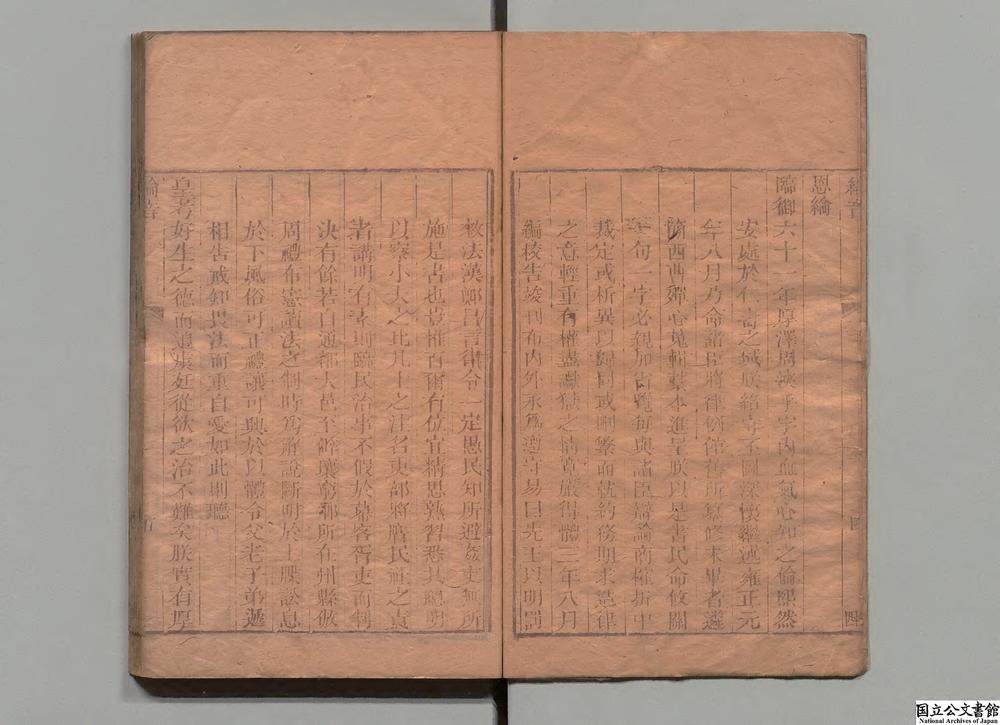 恩綸
臨御六十一年厚澤周浹乎宇內血氣心知之倫熙然
安處於仁壽之域朕紹守丕圖深懷繼述雍正元
年八月乃命諸臣將律例館舊所纂修未畢者遴
簡西曹殫心蒐輯稿本進呈朕以是書民命攸關
一句一字必親加省覽每與諸臣辯論商榷折中
裁定或析異以歸同或刪繁而就約務期求造律
之意輕重有權盡讞獄之情寬嚴得體三年八月
編校告竣刊布內外永為遵守易曰先王以明罰
敕法漢鄭昌言律令一定愚民知所避奸吏無所
施是書也豈惟百爾有位宜精思熟習悉其聰明
以察小大之比凡士之注名吏部將膺民社之責
者講明有素則臨民治事不假於幕客胥吏而制
決有餘若自通都大邑至僻壤窮鄉所在州縣倣
周禮布憲讀法之制時為解說斷明於上牒訟息
於下風俗可正禮讓可興於以體令父老子弟遞
相告戒知畏法而重自愛如此則聽
皇考好生之德而追虞廷從欲之治不難矣朕實有厚
綸音
五
國立公文書館
National Archives of Japan